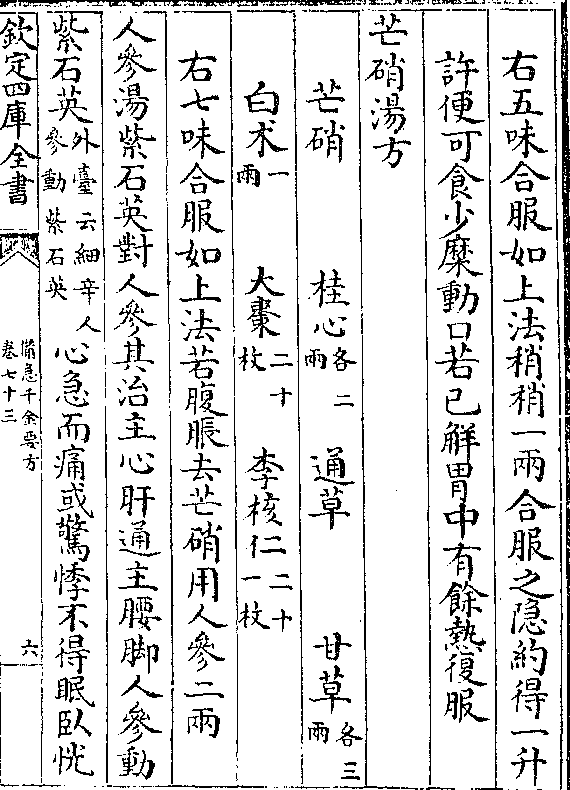 右五味合服如上法稍稍一兩合服之隐約得一升
許便可食少糜動口若已解胃中有餘熱復服
芒硝湯方
芒硝　桂心各二兩　通草　甘草各三兩
白术一兩　大棗二十枚　李核仁二十一枚
右七味合服如上法若腹脹去芒硝用人參二兩
人參湯紫石英對人參其治主心肝通主腰脚人參動
紫石英外臺云細辛人參動紫石英心急而痛或驚悸不得眠臥恍
欽定四庫全書
備急千金要方
卷七十三
六